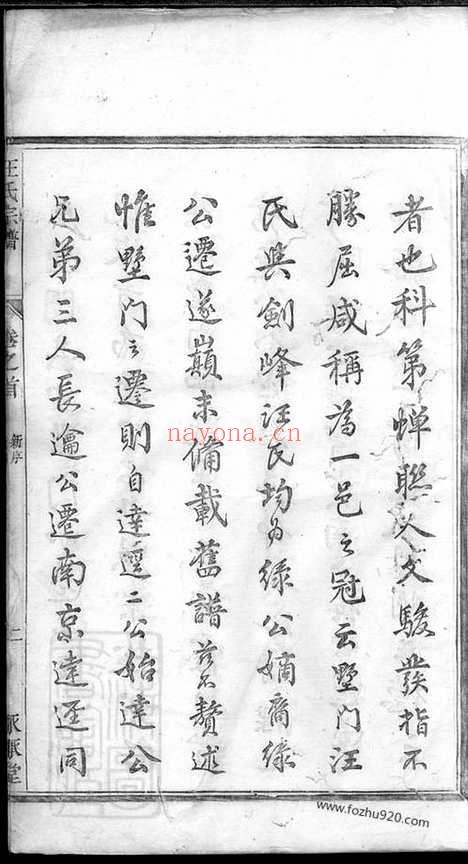 者也科第蟬聯人文駿發指不
勝屈咸稱為一邑之冠云墅門汪
氏與劍峰汪氏均為綠公嫡裔綠
公遷遂巔末備載舊譜茲不贅述
惟墅門之遷則自達遥二公始達公
兄弟三人長邁公遷南京達遥同
汪氏宗譜
卷之首
新序
二
nayona.cn
www.fozhu920.com